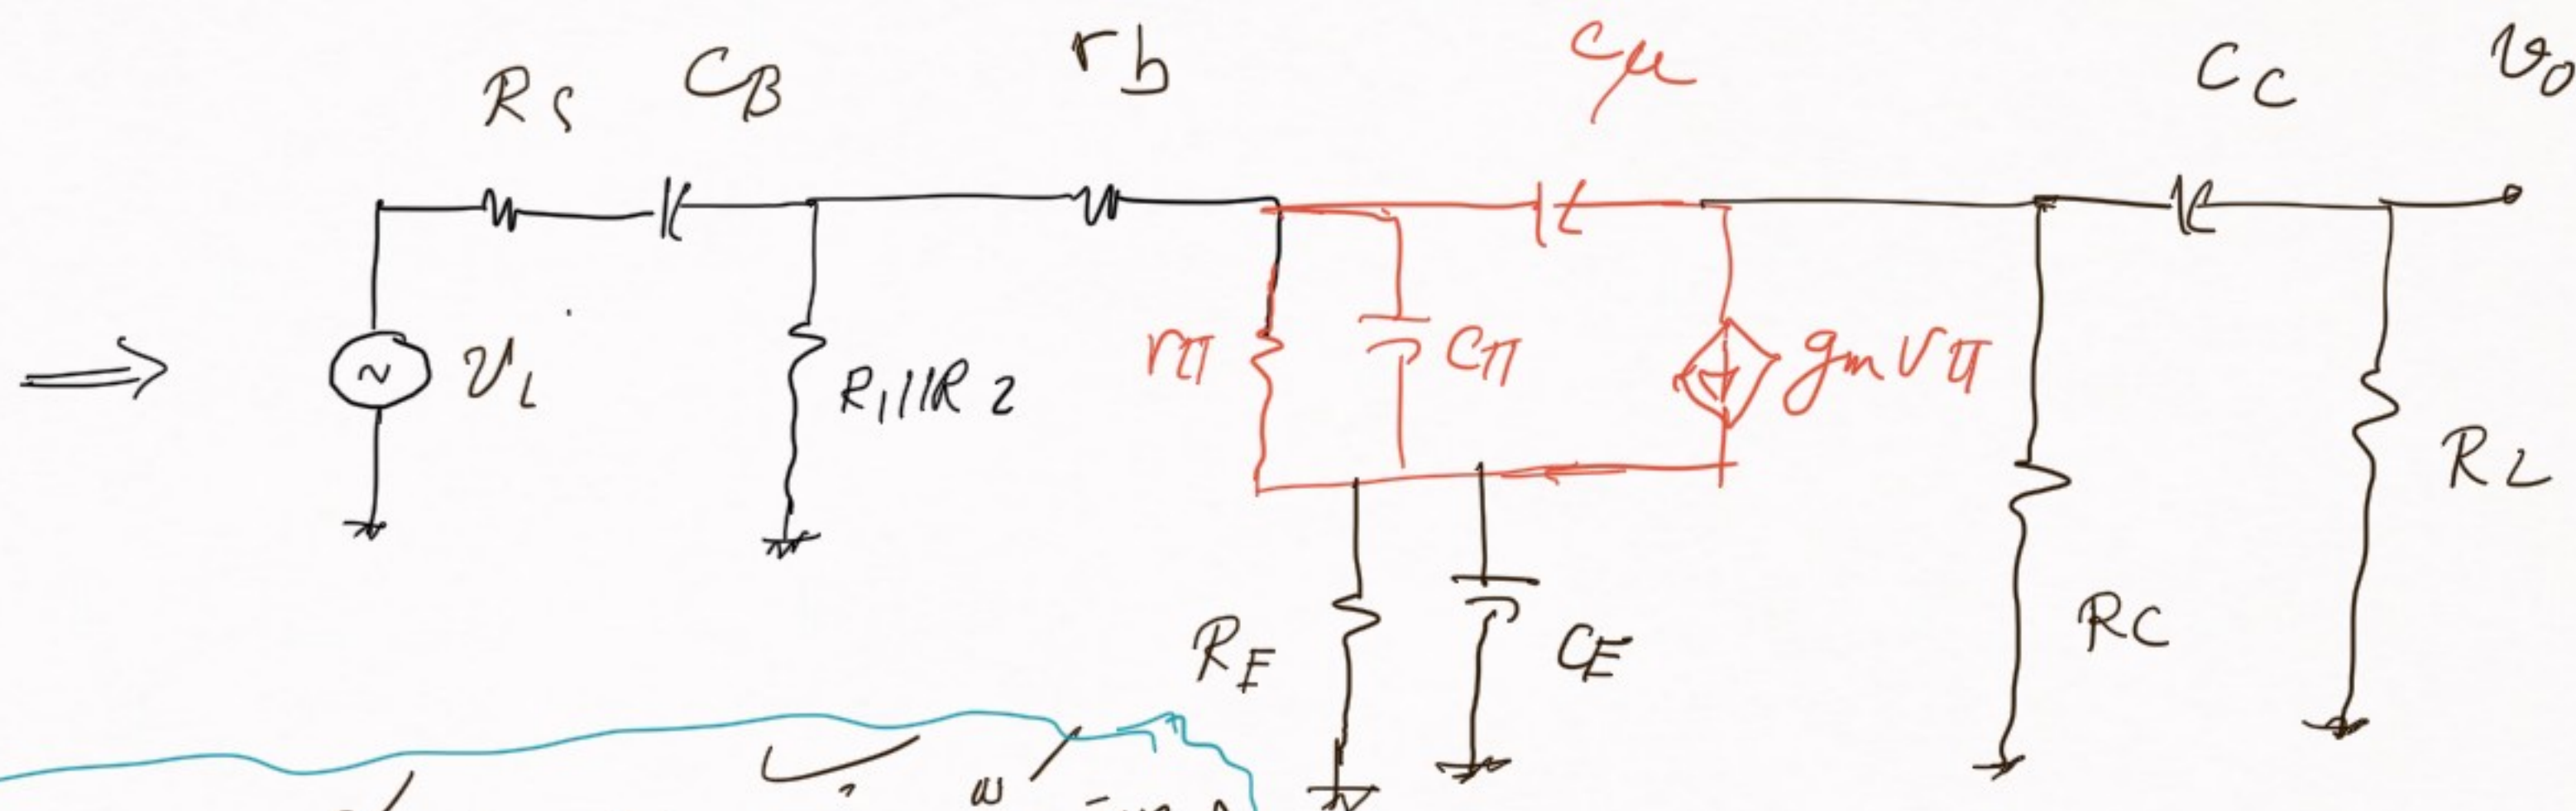 Rs CB rb Cμ CC vo
vL R1||R2 rπ Cπ gmvπ RL
RE CE RC